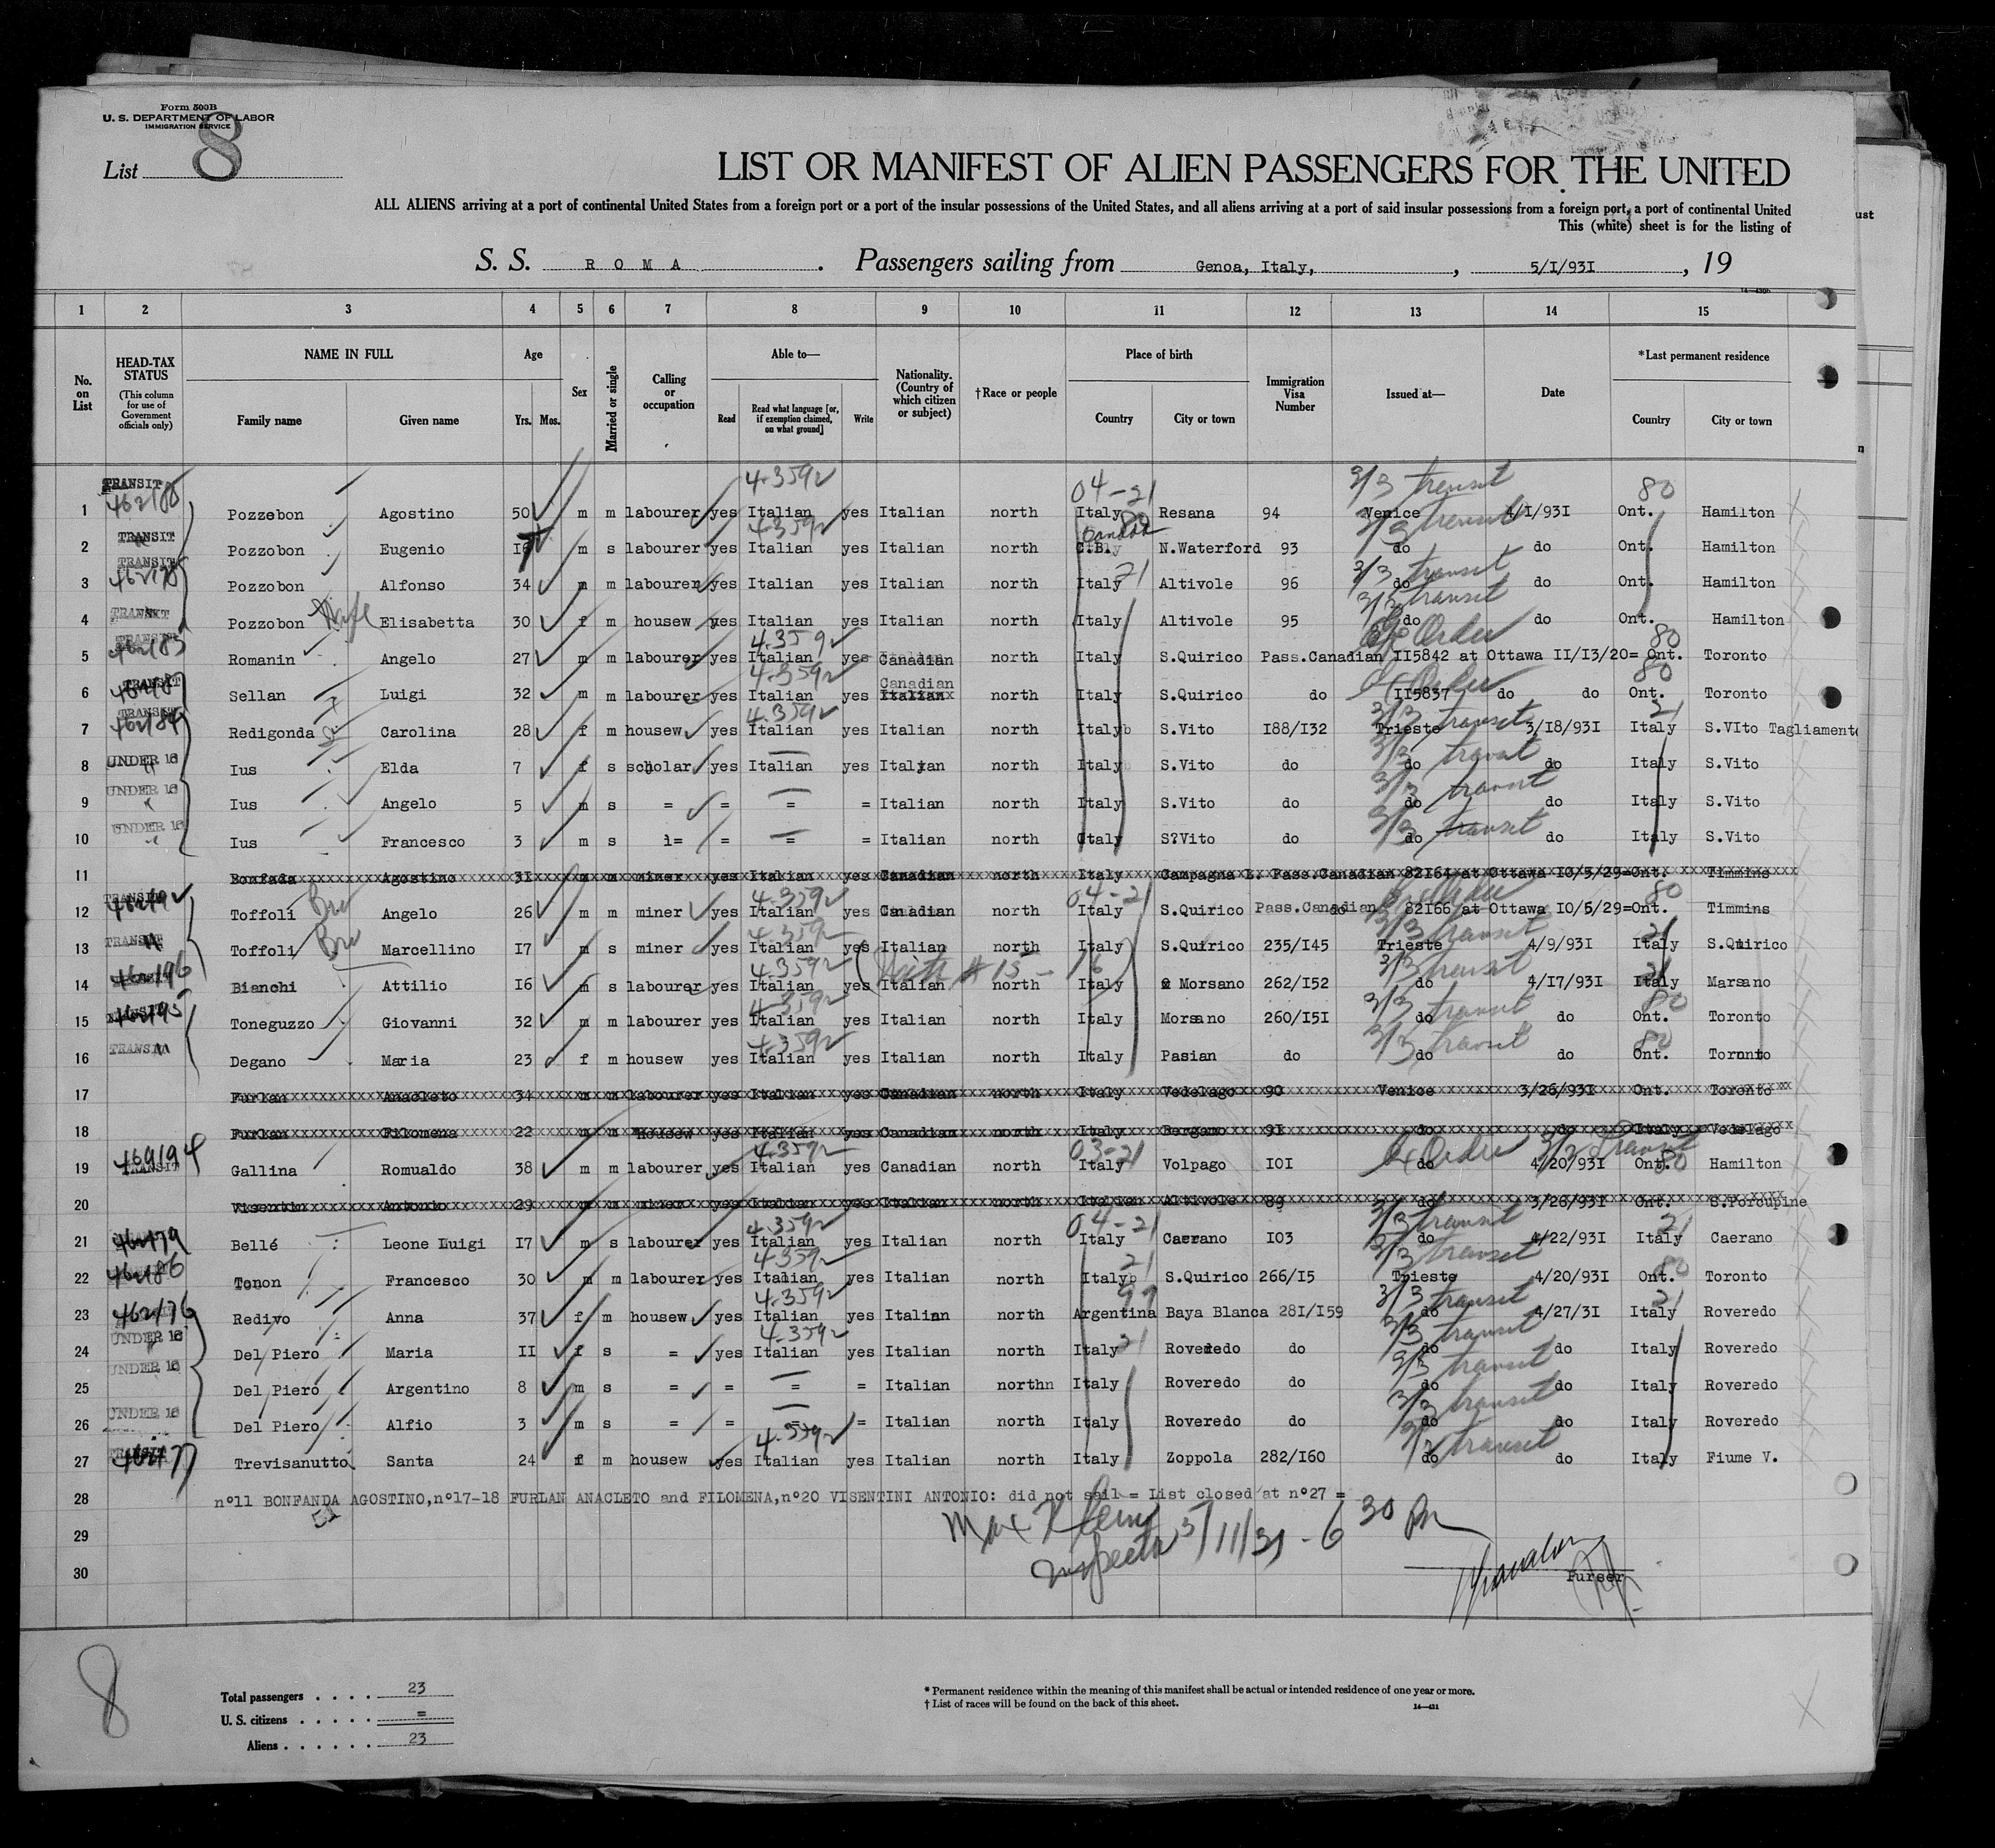 Form 500B
U. S. DEPARTMENT OF LABOR
IMMIGRATION SERVICE
List 8
LIST OR MANIFEST OF ALIEN PASSENGERS FOR THE UNITED
ALL ALIENS arriving at a port of continental United States from a foreign port or a port of the insular possessions of the United States, and all aliens arriving at a port of said insular possessions from a foreign port, a port of continental United
This (white) sheet is for the listing of
S. S. ROMA. Passengers sailing from Genoa, Italy, , 5/I/93I , 19
1 2 3 4 5 6 7 8 9 10 11 12 13 14 15
No. on List
HEAD-TAX STATUS (This column for use of Government officials only)
NAME IN FULL Family name Given name
Age Yrs. Mos.
Sex
Married or single
Calling or occupation
Able to— Read Read what language [or, if exemption claimed, on what ground] Write
Nationality. (Country of which citizen or subject)
†Race or people
Place of birth Country City or town
Immigration Visa Number
Issued at—
Date
*Last permanent residence Country City or town
TRANSIT 4.359 04-21 3/3 transit 80
1 Pozzebon Agostino 50 m m labourer yes Italian yes Italian north Italy Resana 94 Venice 4/1/93I Ont. Hamilton
TRANSIT 4.359 Canada 3/3 transit
2 Pozzobon Eugenio m s labourer yes Italian yes Italian north C.B. N.Waterford 93 do do Ont. Hamilton
TRANSIT 3/3 transit
3 Pozzobon Alfonso 34 m m labourer yes Italian yes Italian north Italy 21 Altivole 96 do do Ont. Hamilton
TRANSIT 3/3 transit
4 Pozzobon Wife Elisabetta 30 f m housew yes Italian yes Italian north Italy Altivole 95 do do Ont. Hamilton
TRANSIT 4.359 Order 80
5 Romanin Angelo 27 m m labourer yes Italian yes Canadian north Italy S.Quirico Pass.Canadian II5842 at Ottawa II/I3/20= Ont. Toronto
TRANSIT 4.359 Canadian Order 80
6 Sellan Luigi 32 m m labourer yes Italian yes Italian north Italy S.Quirico do II5837 do do Ont. Toronto
TRANSIT 4.359 3/3 transit 21
7 Redigonda Carolina 28 f m housew yes Italian yes Italian north Italy S.Vito I88/I32 Trieste 3/I8/93I Italy S.VIto Tagliamento
UNDER 16 3/3 transit
8 Ius Elda 7 f s scholar yes Italian yes Italyan north Italy S.Vito do do do Italy S.Vito
UNDER 16 3/3 transit
9 Ius Angelo 5 m s = = = = Italian north Italy S.Vito do do do Italy S.Vito
UNDER 16 3/3 transit
10 Ius Francesco 3 m s = = = = Italian north Italy S?Vito do do do Italy S.Vito
11 Bonfada Agostino 3I m m miner yes Italian yes Canadian north Italy Campagna L. Pass.Canadian 82I64 at Ottawa I0/5/29=Ont. Timmins
TRANSIT 4.359 04-21 Order 80
12 Toffoli Bro Angelo 26 m m miner yes Italian yes Canadian north Italy S.Quirico Pass.Canadian 82I66 at Ottawa I0/5/29=Ont. Timmins
TRANSIT 4.359 3/3 transit 21
13 Toffoli Bro Marcellino I7 m s miner yes Italian yes Italian north Italy S.Quirico 235/I45 Trieste 4/9/93I Italy S.Quirico
462196 4.359 (With #15-16 3/3 transit 21
14 Bianchi Attilio I6 m s labourer yes Italian yes Italian north Italy Morsano 262/I52 do 4/I7/93I Italy Marsano
462195 4.359 3/3 transit 80
15 Toneguzzo Giovanni 32 m m labourer yes Italian yes Italian north Italy Morsano 260/I5I do do Ont. Toronto
TRANSIT 4.359 3/3 transit 80
16 Degano Maria 23 f m housew yes Italian yes Italian north Italy Pasian do do do Ont. Toronto
17 Furlan Anacleto 34 m m labourer yes Italian yes Canadian north Italy Vedelago 90 Venice 3/26/93I Ont. Toronto
18 Furlan Filomena 22 m m Housew yes Italian yes Canadian north Italy Bergamo 9I do do Italy Vedelago
TRANSIT 4.359 03-21 Order 3/3 transit 80
19 Gallina Romualdo 38 m m labourer yes Italian yes Canadian north Italy Volpago I0I do 4/20/93I Ont. Hamilton
20 Visentin Antonio 29 m m miner yes Italian yes Italian north Italian Altivole 89 do 3/26/93I Ont. S.Porcupine
462179 4.359 04-21 3/3 transit 21
21 Bellé Leone Luigi I7 m s labourer yes Italian yes Italian north Italy Caerano I03 do 4/22/93I Italy Caerano
462186 4.359 21 3/3 transit 80
22 Tonon Francesco 30 m m labourer yes Italian yes Italian north Italy S.Quirico 266/I5 Trieste 4/20/93I Ont. Toronto
462176 4.359 3/3 transit 21
23 Redivo Anna 37 f m housew yes Italian yes Italian north Argentina Baya Blanca 28I/I59 do 4/27/3I Italy Roveredo
UNDER 16 4.359 3/3 transit
24 Del Piero Maria II f s = yes Italian yes Italian north Italy 21 Roveredo do do do Italy Roveredo
UNDER 16 3/3 transit
25 Del Piero Argentino 8 m s = = = = Italian northn Italy Roveredo do do do Italy Roveredo
UNDER 16 3/3 transit
26 Del Piero Alfio 3 m s = = = Italian north Italy Roveredo do do do Italy Roveredo
TRANSIT 462177 4.359 3/3 transit
27 Trevisanutto Santa 24 f m housew yes Italian yes Italian north Italy Zoppola 282/I60 do do Italy Fiume V.
28 n°11 BONFANDA AGOSTINO,n°17-18 FURLAN ANACLETO and FILOMENA,n°20 VISENTINI ANTONIO: did not sail = List closed at n°27 =
29 Inspector 5/11/31 - 6 30 Pm
30 Purser
8
Total passengers . . . . 23
U. S. citizens . . . . . =
Aliens . . . . . . 23
* Permanent residence within the meaning of this manifest shall be actual or intended residence of one year or more.
† List of races will be found on the back of this sheet.
14—431